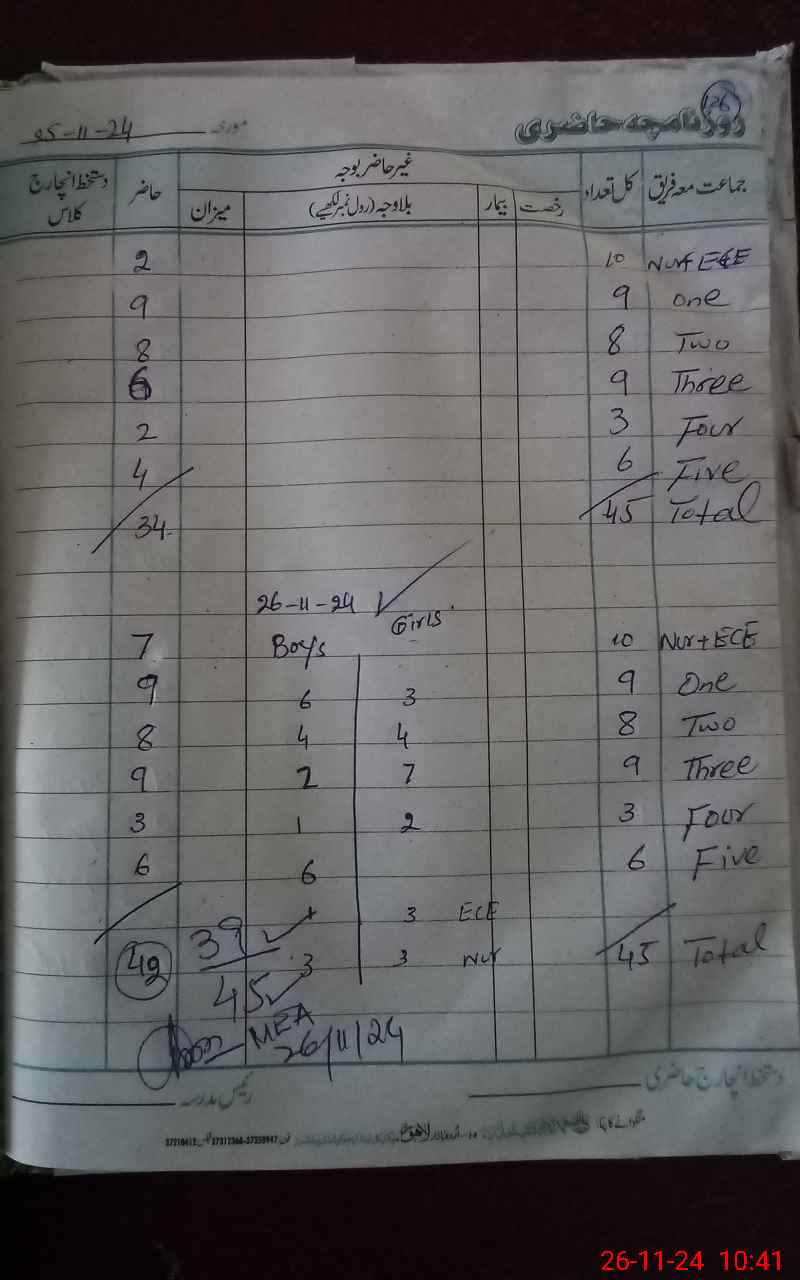 126
روزنامچہ حاضری
مورخہ 25-11-24
جماعت معہ فریق کل تعداد غیر حاضر بوجہ حاضر دستخط انچارج کلاس
رخصت بیمار بلاوجہ (رول نمبر لکھیے) میزان
2 10 Nur+ECE
9 9 One
8 8 Two
6 9 Three
2 3 Four
4 6 Five
34 45 Total
26-11-24
Boys Girls
7 10 Nur+ECE
9 6 3 9 One
8 4 4 8 Two
9 2 7 9 Three
3 1 2 3 Four
6 6 6 Five
3 ECE
42 39 3 3 Nur 45 Total
45
MEA
26/11/24
دستخط انچارج حاضری
رئیس مدرسہ
لاہور
26-11-24 10:41